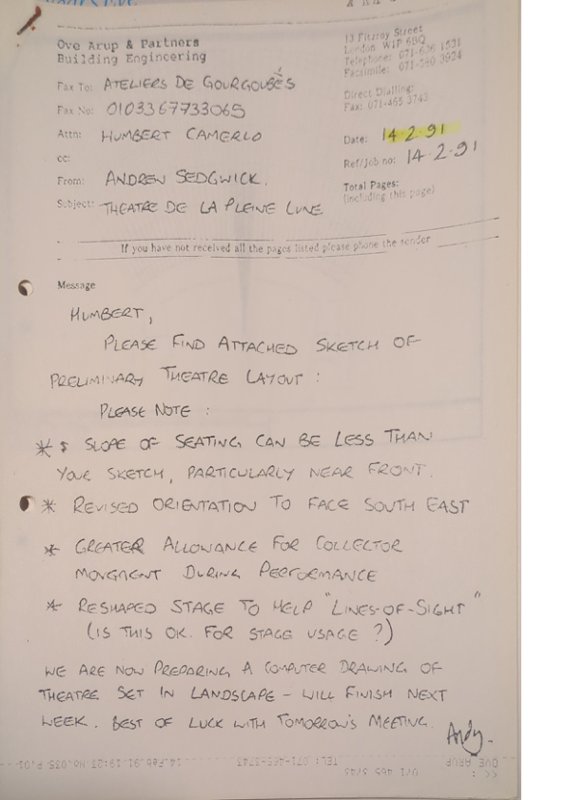 Ove Arup & Partners
Building Engineering
13 Fitzroy Street
London W1P 6BQ
Telephone: 071-636 1531
Facsimile: 071-580 3924
Direct Dialling:
Fax: 071-465 3743
Fax To: ATELIERS DE GOURGOUBÈS
Fax No: 0103367733065
Attn: HUMBERT CAMERLO
cc:
From: ANDREW SEDGWICK.
Subject: THEATRE DE LA PLEINE LUNE
Date: 14.2.91
Ref/Job no: 14.2.91
Total Pages:
(including this page)
If you have not received all the pages listed please phone the sender
Message
HUMBERT,
PLEASE FIND ATTACHED SKETCH OF
PRELIMINARY THEATRE LAYOUT :
PLEASE NOTE :
* SLOPE OF SEATING CAN BE LESS THAN
YOUR SKETCH, PARTICULARLY NEAR FRONT.
* REVISED ORIENTATION TO FACE SOUTH EAST
* GREATER ALLOWANCE FOR COLLECTOR
MOVEMENT DURING PERFORMANCE
* RESHAPED STAGE TO HELP "LINES-OF-SIGHT"
(IS THIS OK. FOR STAGE USAGE ?)
WE ARE NOW PREPARING A COMPUTER DRAWING OF
THEATRE SET IN LANDSCAPE – WILL FINISH NEXT
WEEK. BEST OF LUCK WITH TOMORROW'S MEETING.
Andy.
OVE ARUP TEL: 071-465-3743 14.Feb.91 19:13 No.035 P.01